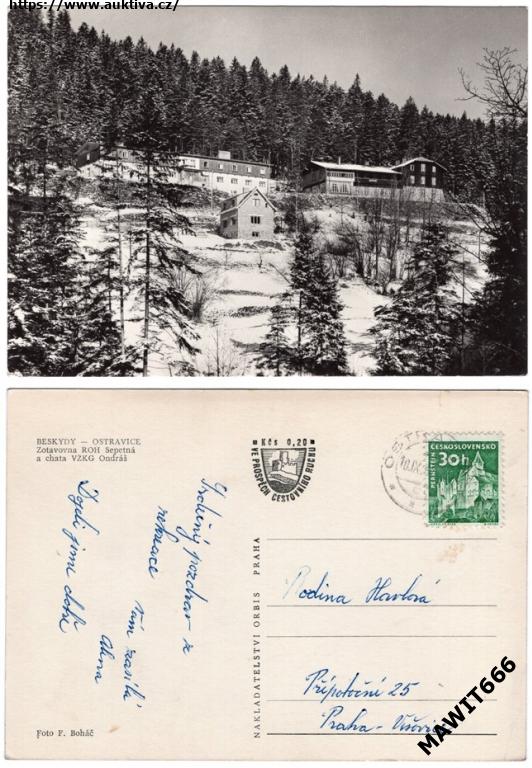 https://www.auktiva.cz/
BESKYDY — OSTRAVICE
Zotavovna ROH Sepetná
a chata VŽKG Ondráš
Kčs 0,20
VE PROSPĚCH CESTOVNÍHO RUCHU
ČESKOSLOVENSKO
30h
PERNŠTEJN
Srdečný pozdrav z
rekreace
Vám zasílá
Alena
Dojeli jsme dobře
NAKLADATELSTVÍ ORBIS PRAHA
Rodina Havlová
Přípotoční 25
Praha-
Foto F. Boháč
MAWIT666